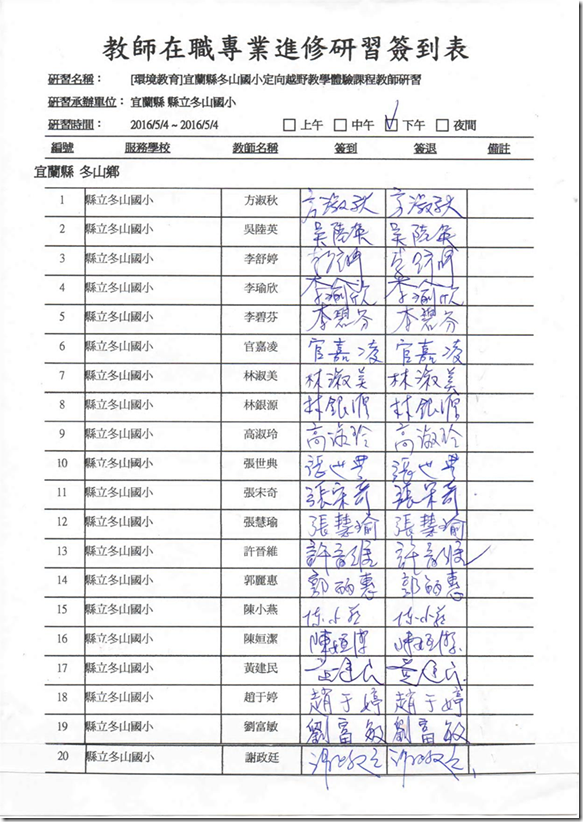 教師在職專業進修研習簽到表
研習名稱： [環境教育]宜蘭縣冬山國小定向越野教學體驗課程教師研習
研習承辦單位： 宜蘭縣 縣立冬山國小
研習時間： 2016/5/4 ~ 2016/5/4 □ 上午 □ 中午 ☑ 下午 □ 夜間
編號 服務學校 教師名稱 簽到 簽退 備註
宜蘭縣 冬山鄉
1 縣立冬山國小 方淑秋 方淑秋 方淑秋
2 縣立冬山國小 吳陸英 吳陸英 吳陸英
3 縣立冬山國小 李舒婷 李舒婷 李舒婷
4 縣立冬山國小 李瑜欣 李瑜欣 李瑜欣
5 縣立冬山國小 李碧芬 李碧芬 李碧芬
6 縣立冬山國小 官嘉凌 官嘉凌 官嘉凌
7 縣立冬山國小 林淑美 林淑美 林淑美
8 縣立冬山國小 林銀源 林銀源 林銀源
9 縣立冬山國小 高淑玲 高淑玲 高淑玲
10 縣立冬山國小 張世典 張世典 張世典
11 縣立冬山國小 張宋奇 張宋奇 張宋奇
12 縣立冬山國小 張慧瑜 張慧瑜 張慧瑜
13 縣立冬山國小 許晉維 許晉維 許晉維
14 縣立冬山國小 郭麗惠 郭麗惠 郭麗惠
15 縣立冬山國小 陳小燕 陳小燕 陳小燕
16 縣立冬山國小 陳姮潔 陳姮潔 陳姮潔
17 縣立冬山國小 黃建民 黃建民 黃建民
18 縣立冬山國小 趙于婷 趙于婷 趙于婷
19 縣立冬山國小 劉富敏 劉富敏 劉富敏
20 縣立冬山國小 謝政廷 謝政廷 謝政廷